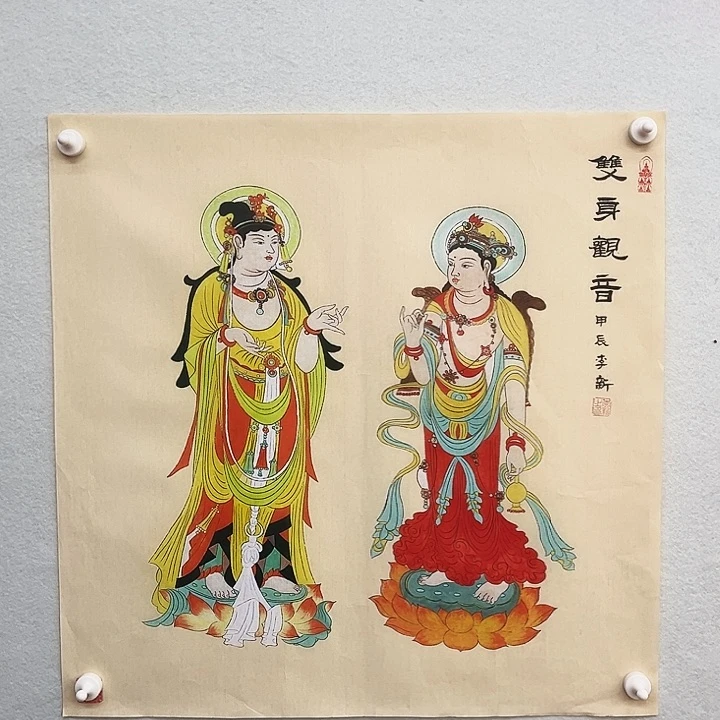 雙身觀音
甲辰李新